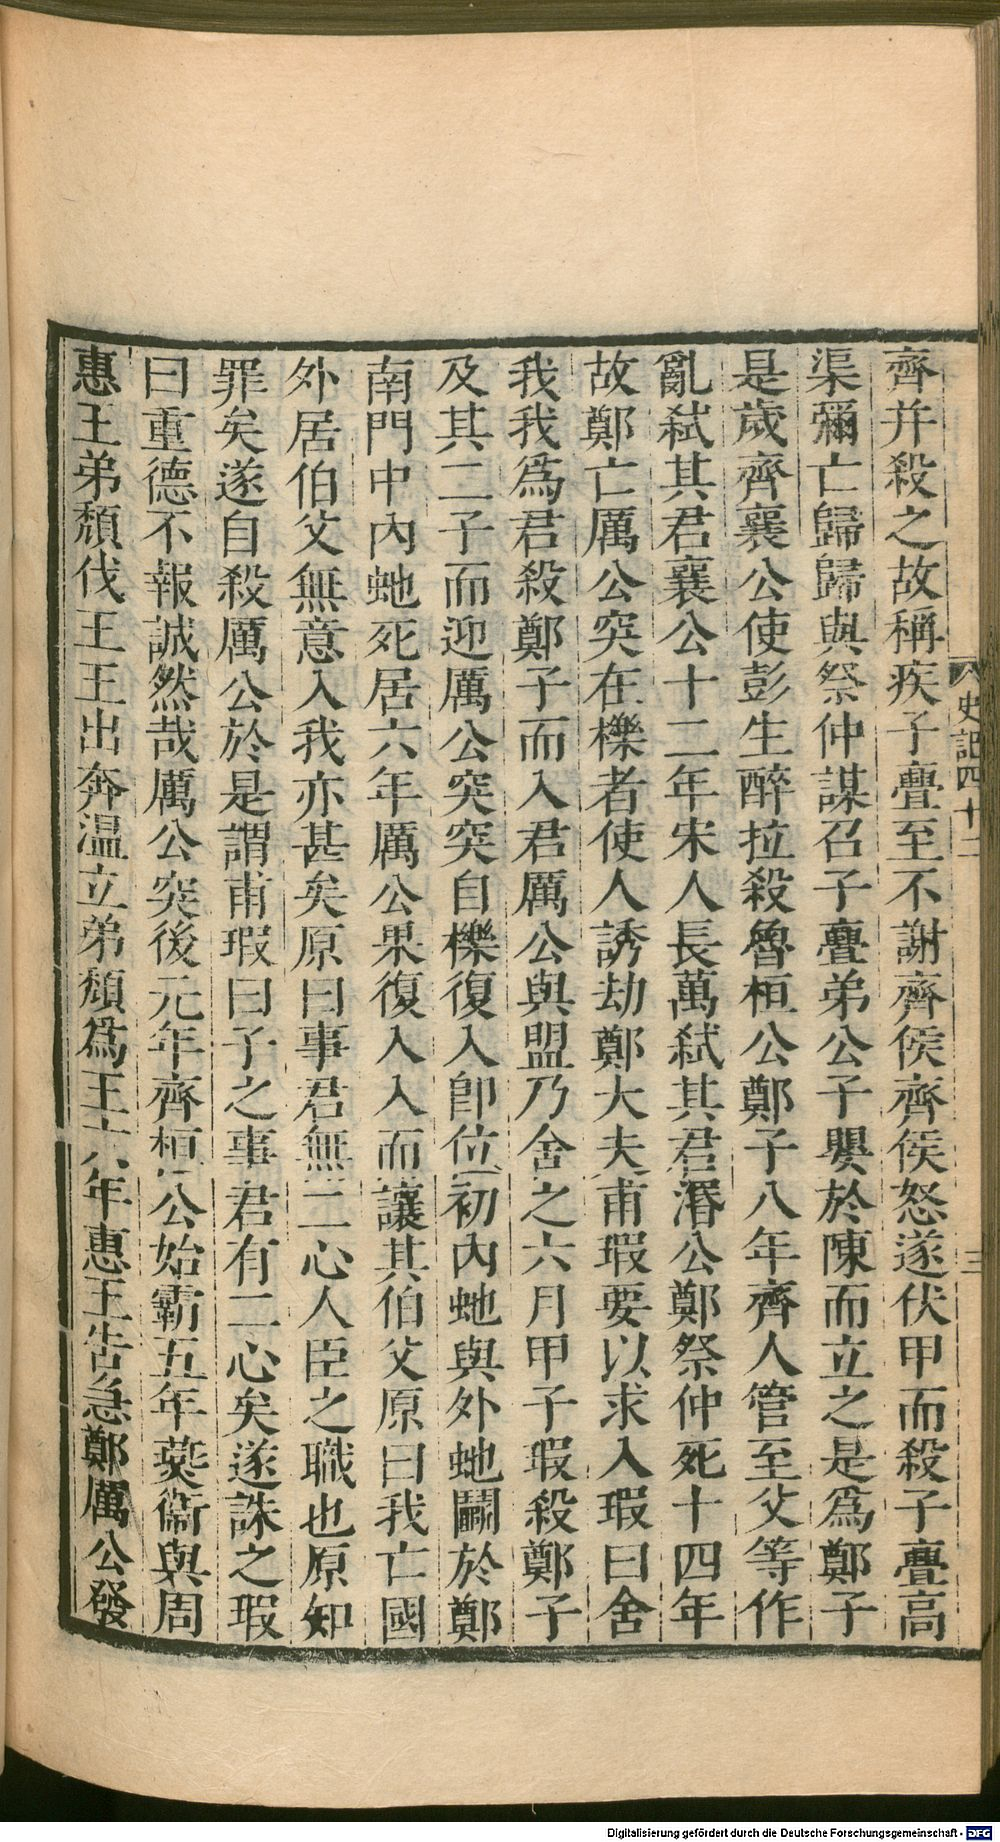 史記四十二
三
齊并殺之故稱疾子亹至不謝齊侯齊侯怒遂伏甲而殺子亹高
渠彌亡歸歸與祭仲謀召子亹弟公子嬰於陳而立之是爲鄭子
是歲齊襄公使彭生醉拉殺魯桓公鄭子八年齊人管至父等作
亂弑其君襄公十二年宋人長萬弑其君湣公鄭祭仲死十四年
故鄭亡厲公突在櫟者使人誘劫鄭大夫甫瑕要以求入瑕曰舍
我我爲君殺鄭子而入君厲公與盟乃舍之六月甲子瑕殺鄭子
及其二子而迎厲公突突自櫟復入卽位初內虵與外虵鬭於鄭
南門中內虵死居六年厲公果復入入而讓其伯父原曰我亡國
外居伯父無意入我亦甚矣原曰事君無二心人臣之職也原知
罪矣遂自殺厲公於是謂甫瑕曰子之事君有二心矣遂誅之瑕
曰重德不報誠然哉厲公突後元年齊桓公始霸五年燕衞與周
惠王弟頹伐王王出奔温立弟頹爲王六年惠王告急鄭厲公發
Digitalisierung gefördert durch die Deutsche Forschungsgemeinschaft - DFG